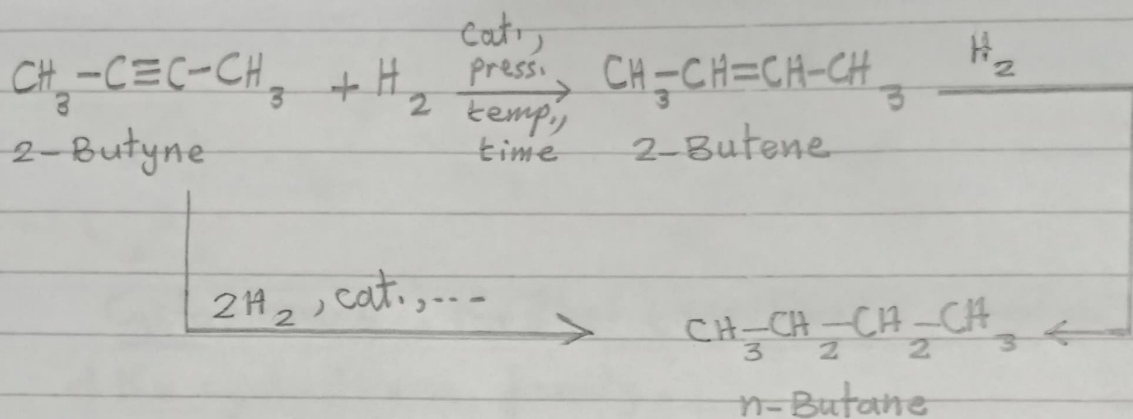 CH₃-C≡C-CH₃ + H₂ cat., press. temp., time CH₃-CH=CH-CH₃ H₂
2-Butyne 2-Butene
2H₂, cat., ... CH₃-CH₂-CH₂-CH₃
n-Butane